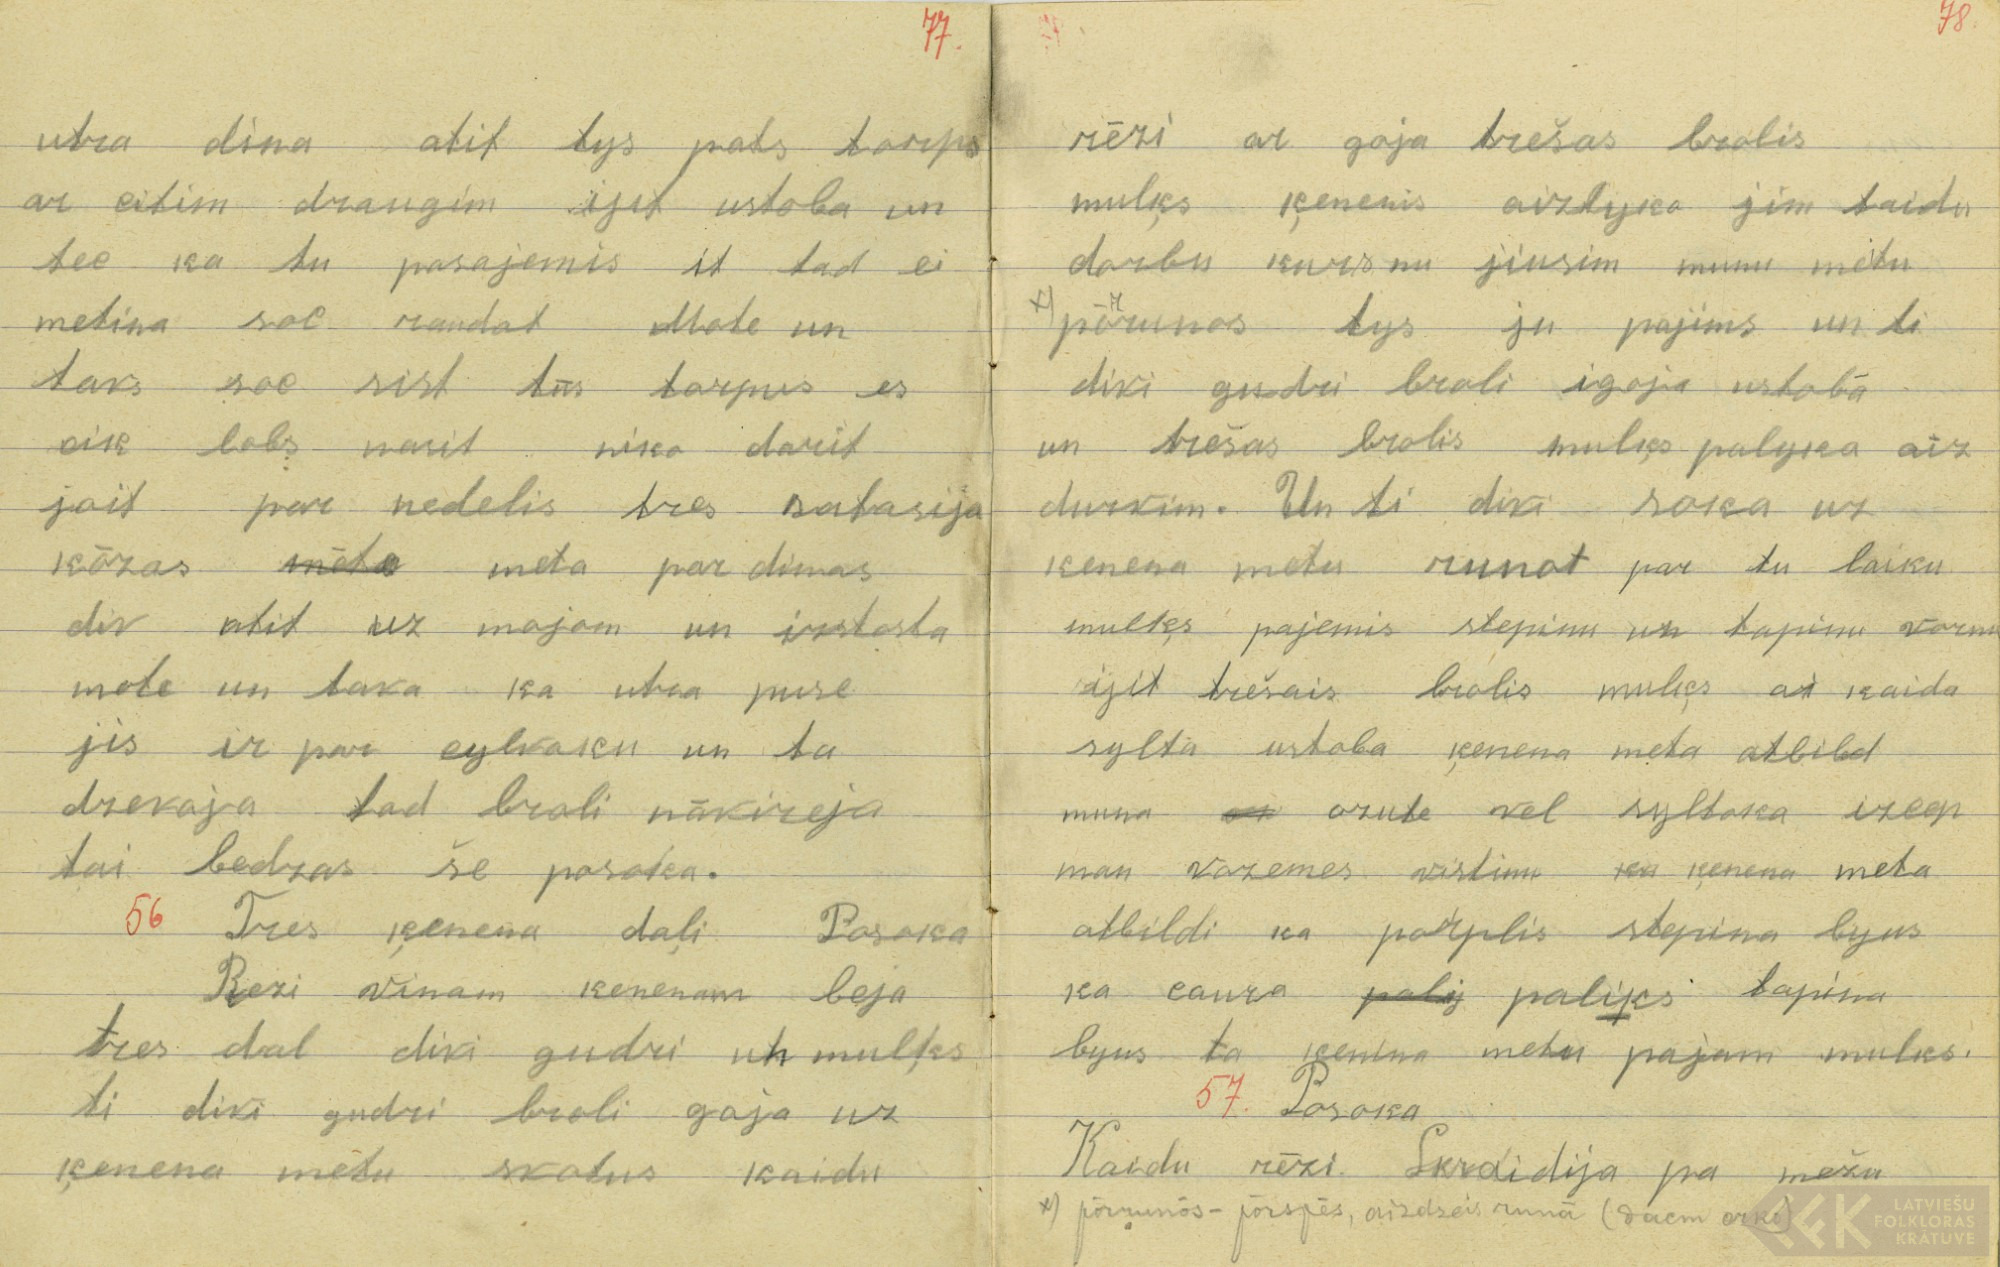 77.
utra dina atit tys pats torps
ar citim draugim ijit ustoba un
tec ka tu pasajemis it tad ei
metina soc raudat Mote un
tavs soc sist tūs torpus es
cik lobs narit niko dorit
jait par nedelis tres sataisija
kōzas meta par dinas
div atit uz mojom un izstosta
mote un tava ka utra puse
jis ir par cylvaku un ta
dzevaja tad broli nākireja
tai bedzas še posoka.
56 Tres ķenena daļi Posoka
Rezi vinam kenenam beja
tres dal divi gudri un mulķs
ti divi gudri broli goja uz
ķenena mētu skotus kaidu
78.
rēzi ar goja trešas brolis
mulķs ķenenis aiztyka jim taidu
dorbu kurs nu jiusim munu mētu
x) pōrrunos tys ju pajims un ti
divi gudri broli igoja ustobā
un trešas brolis mulķs palyka aiz
durvim. Un ti divi soka uz
kenena metu runot par tu laiku
mulķs pajemis stepinu un tapinu vornu
ijit trešais brolis mulķs ai kaida
sylta ustoba ķenena meta atbild
muna ozute vel syltoka izcep
man vozemes vistinu ka ķenena meta
atbildi ka porplis stepina byus
ka caura paliks tapina
byus ta kenina metu pajam mulks.
57. Posoka
Kaidu rēzi Skraidija pa mežu
x) pōrrunōs – pōrspēs, aizdzeis runā
LATVIEŠU
FOLKLORAS
KRĀTUVE